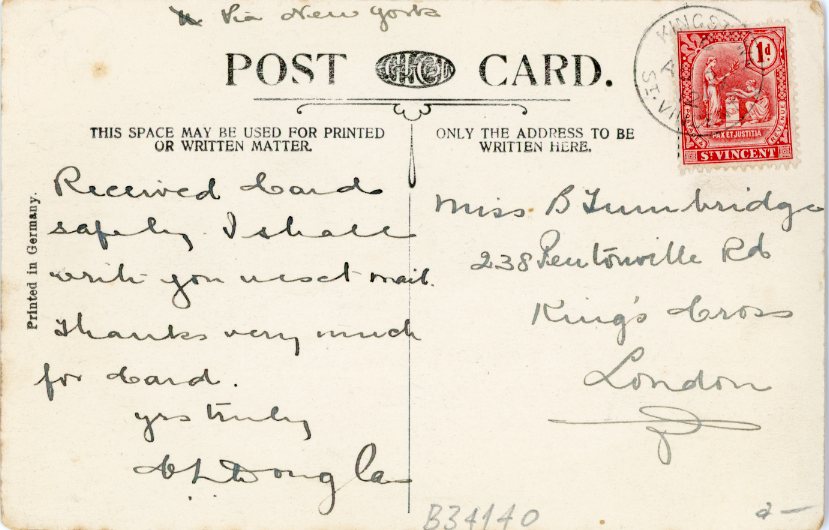 Via New York
POST CARD.
THIS SPACE MAY BE USED FOR PRINTED
OR WRITTEN MATTER.
ONLY THE ADDRESS TO BE
WRITTEN HERE.
KINGST
ST. VIN
1d
PAX ET JUSTITIA
ST VINCENT
Printed in Germany.
Received Card
safely I shall
write you next mail.
Thanks very much
for Card.
yrs truly
Miss B Tunbridge
238 Pentonville Rd
King's Cross
London
B34140
a-